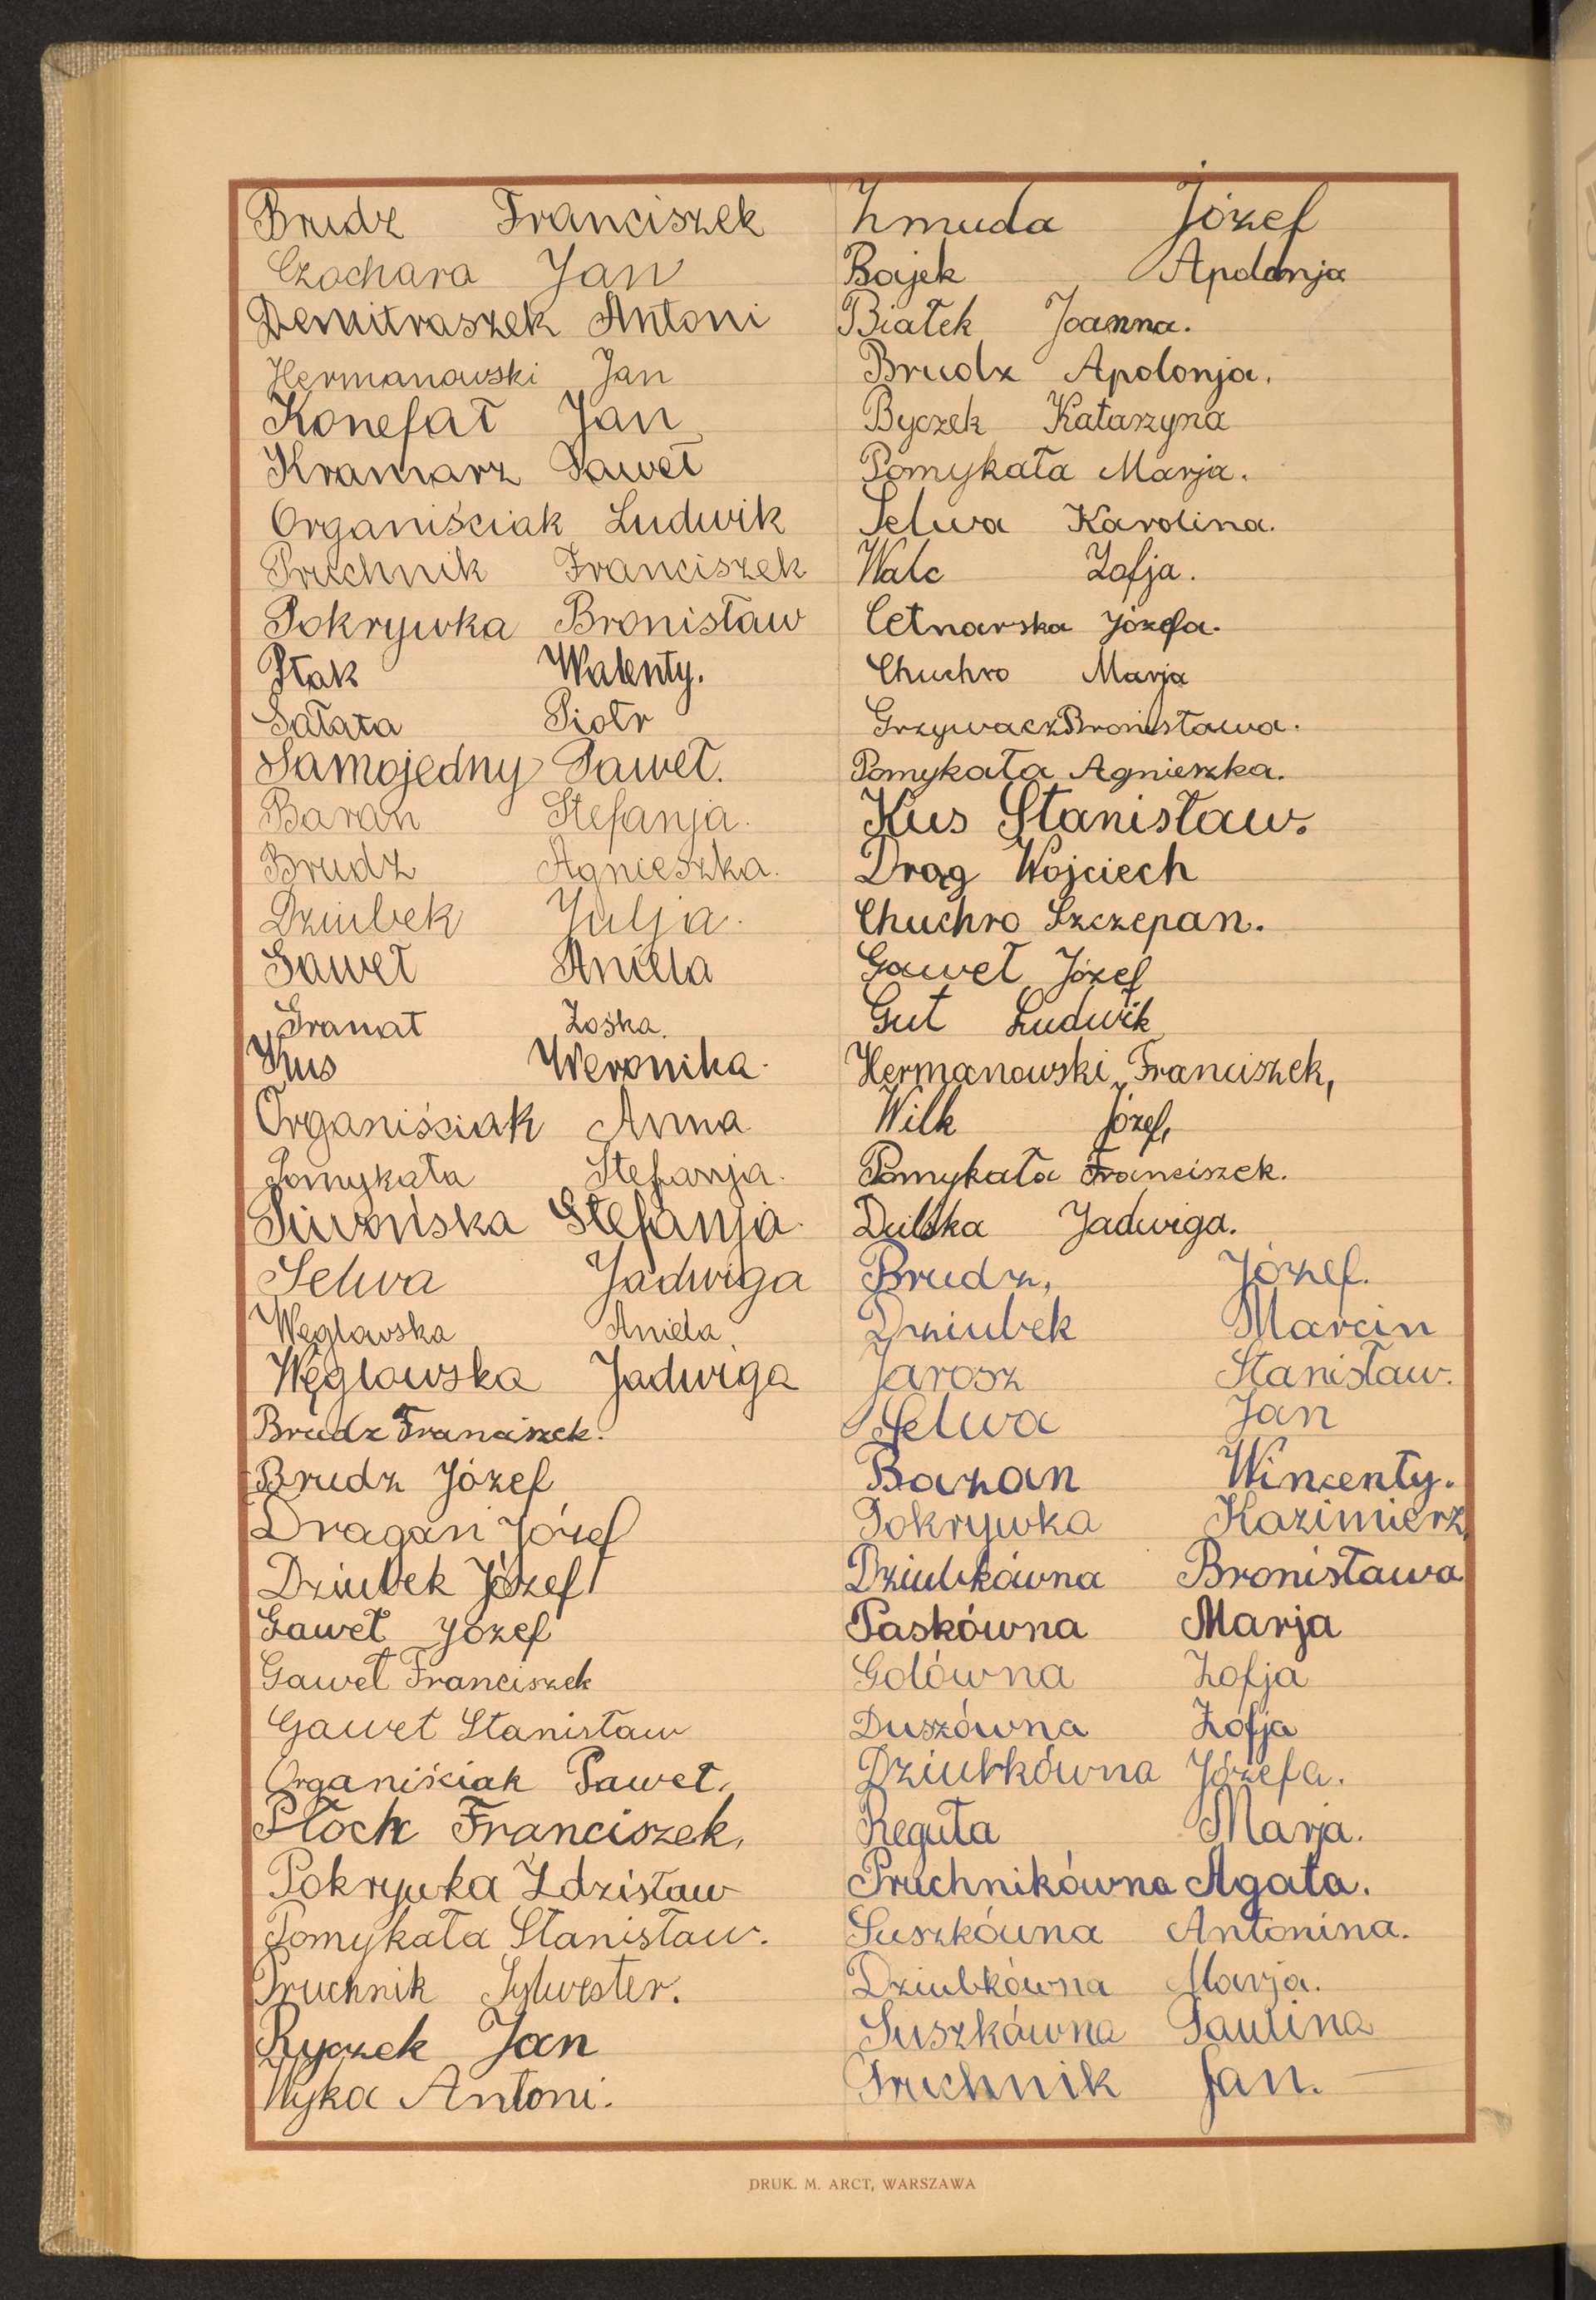 Brudz Franciszek
Czochara Jan
Demitraszek Antoni
Hermanowski Jan
Konefał Jan
Kramarz Paweł
Organiściak Ludwik
Pruchnik Franciszek
Pokrywka Bronisław
Ptak Walenty.
Sałata Piotr
Samojedny Paweł.
Baran Stefanja.
Brudz Agnieszka.
Dziubek Julja.
Gaweł Aniela
Granat Zośka.
Kus Weronika.
Organiściak Anna
Pomykała Stefanja.
Piwońska Stefanja.
Selwa Jadwiga
Węglowska Aniela
Węglowska Jadwiga
Brudz Franciszek.
Brudz Józef
Dragan Józef
Dziubek Józef
Gaweł Józef
Gaweł Franciszek
Gaweł Stanisław
Organiściak Paweł.
Płoch Franciszek,
Pokrywka Zdzisław
Pomykała Stanisław.
Pruchnik Sylwester.
Ryczek Jan
Wyka Antoni.
Żmuda Józef
Bajek Apolonja
Białek Joanna.
Brudz Apolonja.
Byczek Katarzyna
Pomykała Marja.
Selwa Karolina.
Walc Zofja.
Cetnarska Józefa.
Chuchro Marja
Grzywacz Bronisława.
Pomykała Agnieszka.
Kus Stanisław.
Drag Wojciech
Chuchro Szczepan.
Gaweł Józef
Gut Ludwik
Hermanowski Franciszek,
Wilk Józef,
Pomykała Franciszek.
Dulska Jadwiga.
Brudz, Józef.
Dziubek Marcin
Jarosz Stanisław.
Selwa Jan
Bazan Wincenty.
Pokrywka Kazimierz.
Dziubkówna Bronisława
Paskówna Marja
Golówna Zofja
Duszówna Zofja
Dziubkówna Józefa.
Reguła Marja.
Pruchnikówna Agata.
Suszkówna Antonina.
Dziubkówna Marja.
Suszkówna Paulina
Pruchnik Jan.
DRUK. M. ARCT, WARSZAWA